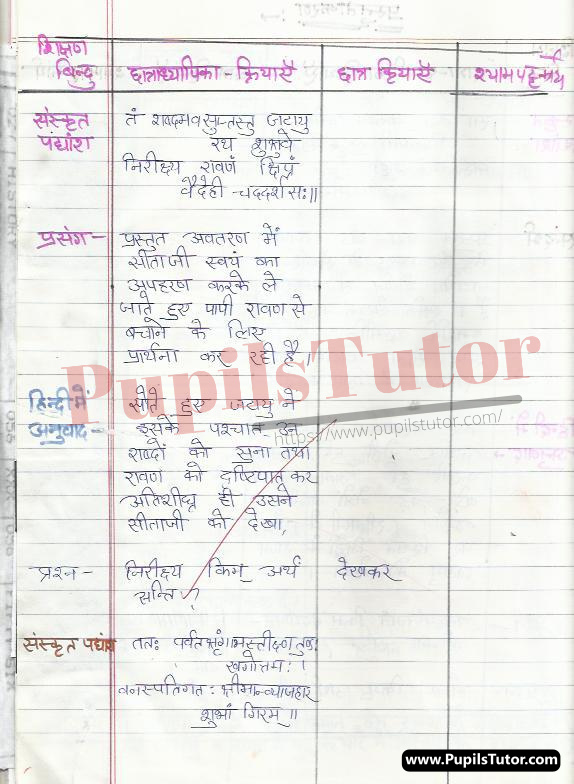 शिक्षण
बिन्दु छात्राध्यापिका - क्रियाएँ छात्र क्रियाएँ श्यामपट्ट कार्य
संस्कृत तं शब्दमवसुप्तस्तु जटायु
पद्यांश रथ शुश्रुवे
निरीक्ष्य रावणं क्षिप्रं
वैदेही च ददर्श सः॥
प्रसंग - प्रस्तुत अवतरण में
सीताजी स्वयं का
अपहरण करके ले
जाते हुए पापी रावण से
बचाने के लिए
प्रार्थना कर रही है।
PupilsTutor
हिन्दी में सोते हुए जटायु ने
अनुवाद - इसके पश्चात उन
https://www.pupilstutor.com/
शब्दों को सुना तथा
रावण को दृष्टिपात कर
अतिशीघ्र ही उसने
सीताजी को देखा,
प्रश्न - निरीक्ष्य किम् अर्थ देखकर
सन्ति?
संस्कृत पद्यांश ततः पर्वतशृंगाभस्तीक्ष्ण तुण्ड:
खगोत्तमः।
वनस्पतिगतः श्रीमान्व्याजहार
शुभां गिरम्॥
www.PupilsTutor.com